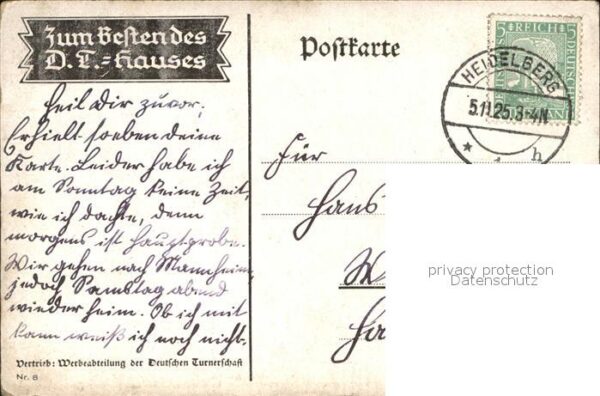 Zum Besten des
D. T.=Hauses
Postkarte
5 REICH 5
DEUTSCHES
HEIDELBERG
5.11.25.3-4N
* 1 h
Heil Dir zuvor,
Erhielt soeben deine
Karte. Leider habe ich
am Sonntag keine Zeit,
wie ich dachte, denn
morgens ist Hauptprobe.
Wir gehen nach Mannheim,
jedoch Samstag abend
wieder heim. Ob ich mit
kann weiß ich noch nicht.
Für
Hans
W
Ha
privacy protection
Datenschutz
Vertrieb: Werbeabteilung der Deutschen Turnerschaft
Nr. 8